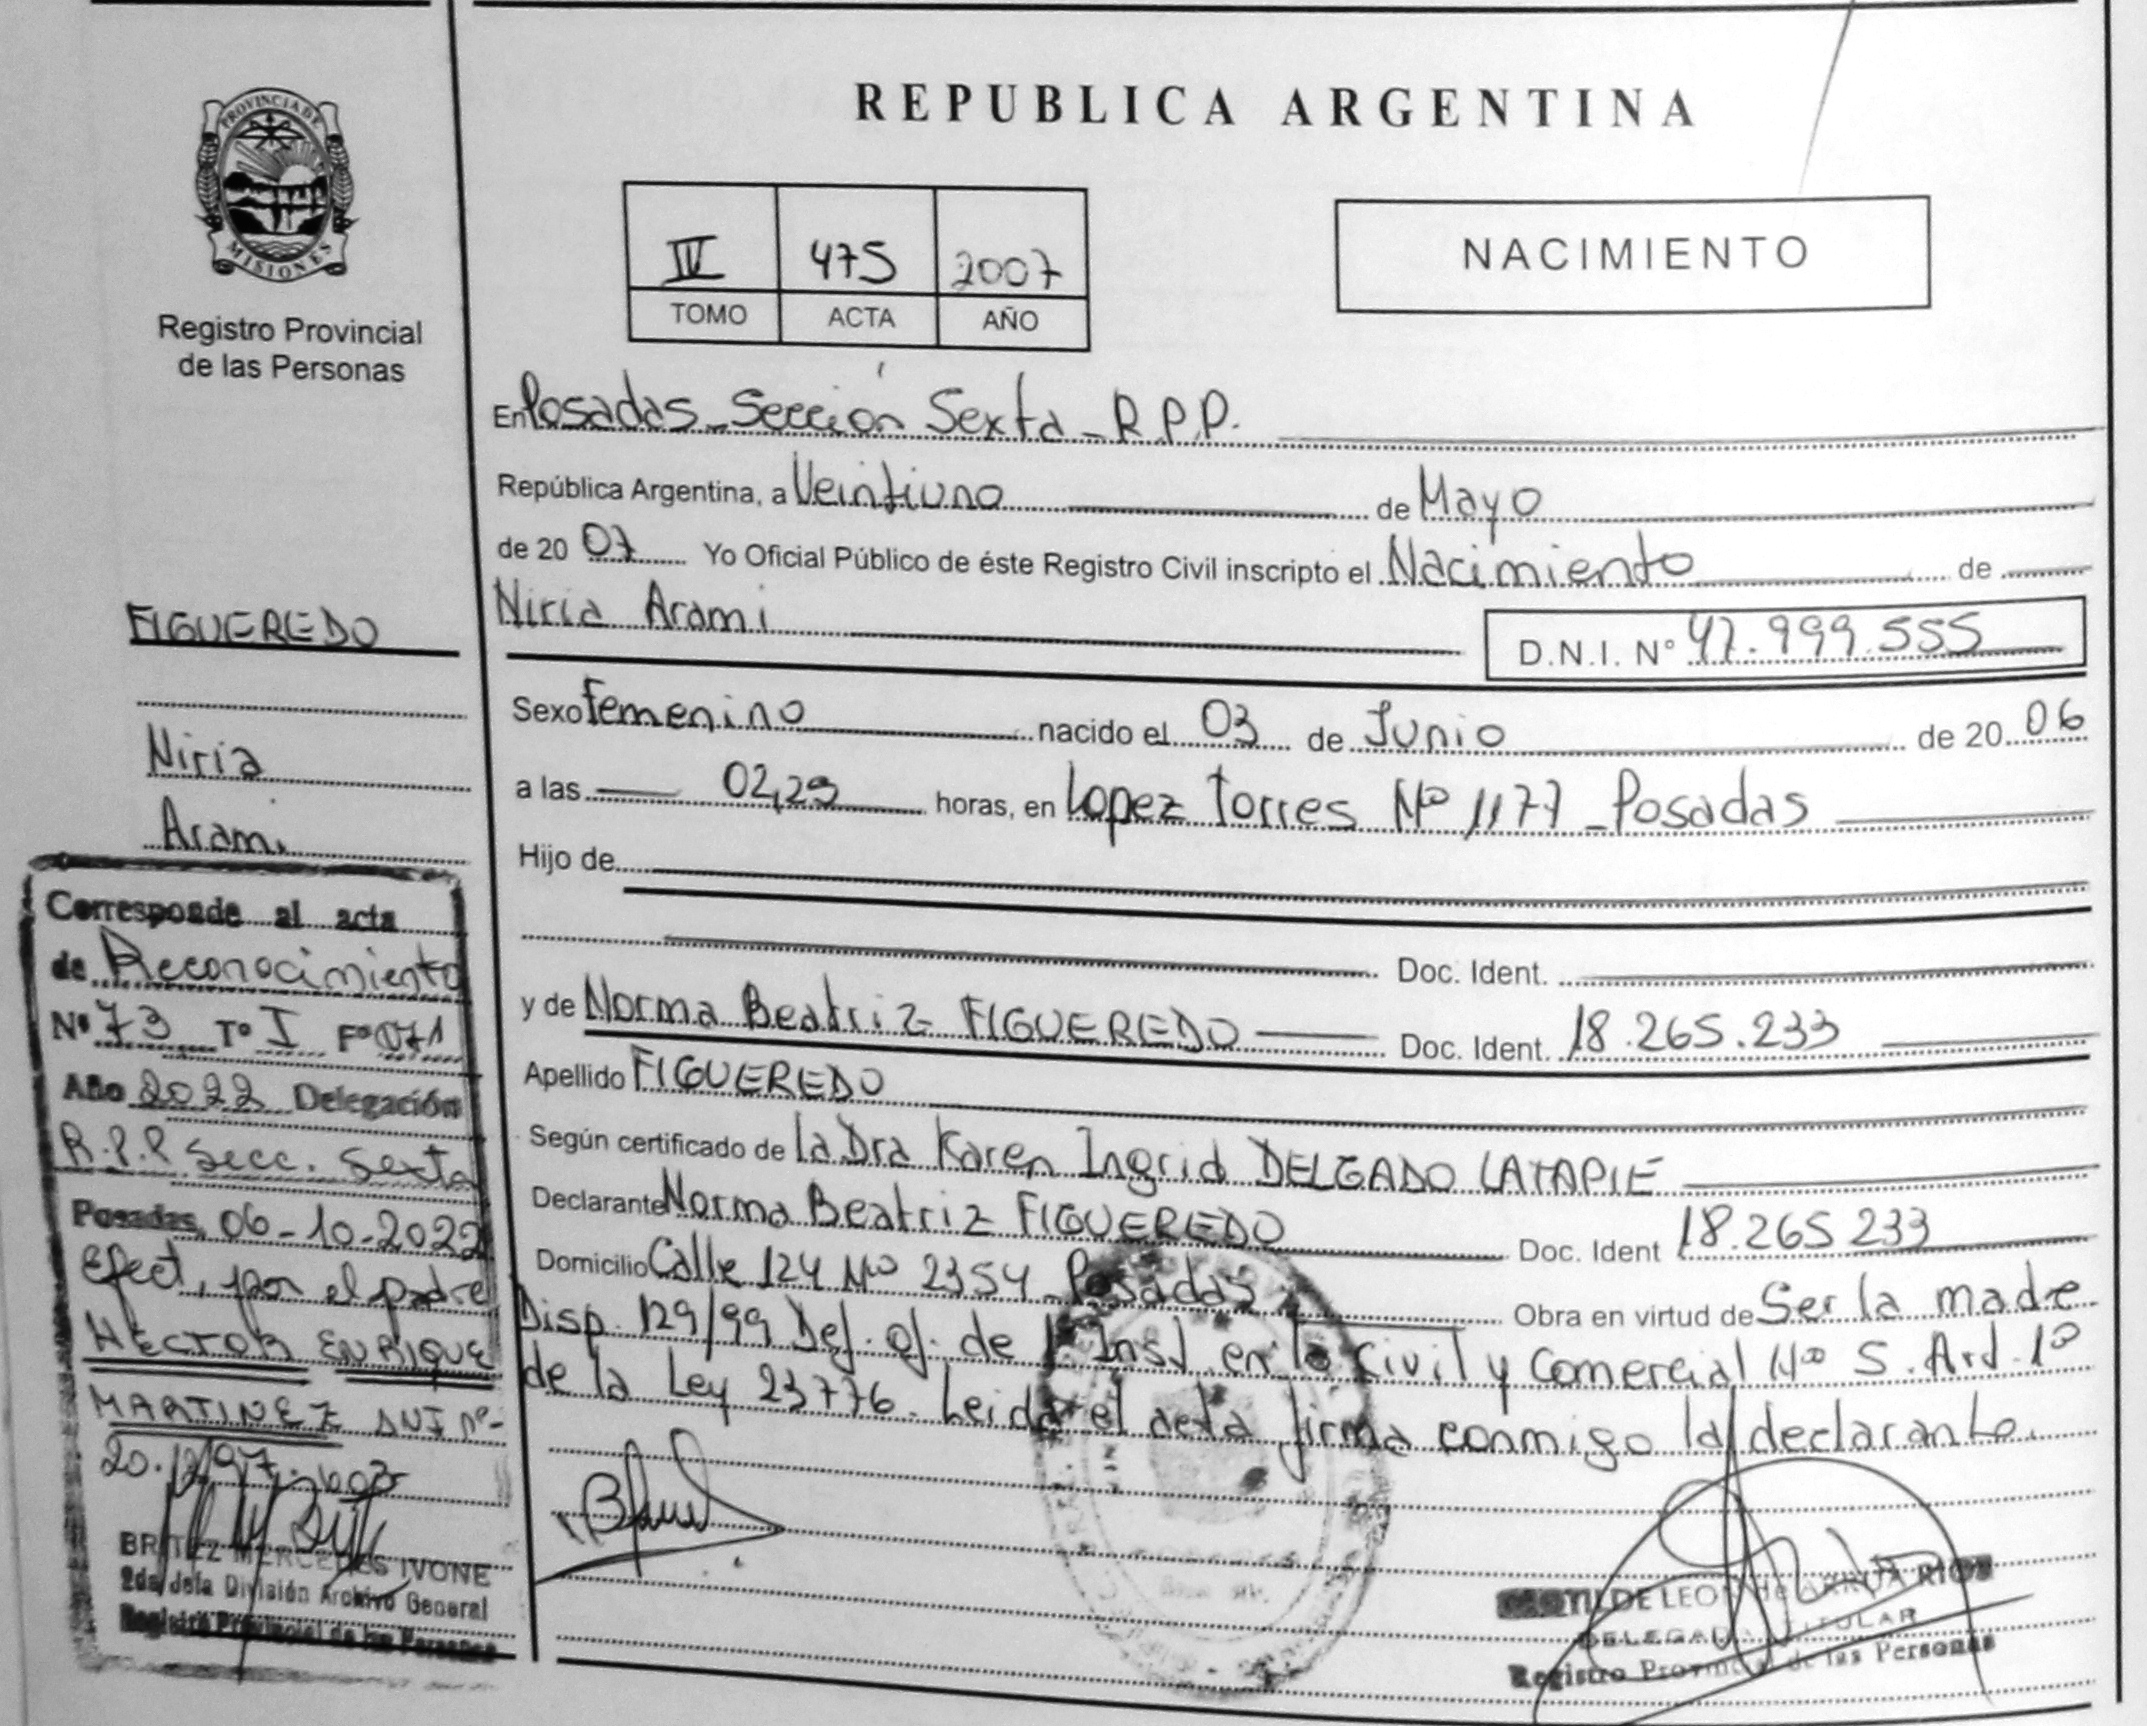 PROVINCIA DE
MISIONES
Registro Provincial
de las Personas
FIGUEREDO
Niria
Arami
Corresponde al acta
de Reconocimiento
Nº 73 Tº I Fº 071
Año 2022 Delegación
R.P.P. Secc. Sexta
Posadas, 06-10-2022
Efect, por el padre
HECTOR ENRIQUE
MARTINEZ DNI Nº-
BRITEZ MERCEDES IVONE
2da Jefa División Archivo General
Registro Provincial de las Personas
REPUBLICA ARGENTINA
IV 475 2007
TOMO ACTA AÑO
NACIMIENTO
En Posadas_Sección Sexta_R.P.P.
República Argentina, a Veintiuno de Mayo
de 20 07 Yo Oficial Público de éste Registro Civil inscripto el Nacimiento de
Niria Arami
D.N.I. Nº 47.999.555
Sexo Femenino nacido el 03 de Junio de 20 06
a las 02,29 horas, en Lopez Torres Nº 1177_Posadas
Hijo de
Doc. Ident.
y de Norma Beatriz FIGUEREDO Doc. Ident. 18.265.233
Apellido FIGUEREDO
Según certificado de la Dra Karen Ingrid DELGADO LATAPIE
Declarante Norma Beatriz FIGUEREDO Doc. Ident 18.265 233
Domicilio Calle 124 Nº 2354_Posadas Obra en virtud de Ser la madre
Disp. 129/99 Def. of. de 1º Inst. en lo Civil y Comercial Nº 5. Art. 1º
de la Ley 23776. Leida el acta firma conmigo la declarante.
DE LEON de ARRUA RIOS
DELEGADA TITULAR
Registro Provincial de las Personas